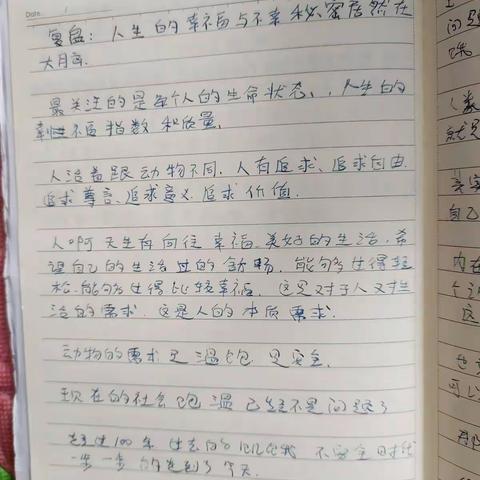 Date
复盘：人生的幸福与不幸秘密居然在
大脑
最关注的是每个人的生命状态、，人生的
幸福指数和质量，
人活着跟动物不同，人有追求、追求自由
追求尊言、追求意义、追求价值.
人啊天生有向往幸福、美好的生活，希
望自己的生活过的舒畅，能够多住得轻
松、能够多住得比较幸福，这是对于人对生
活的需求，这是人的本质需求.
动物的需求是温饱 是安全.
现在的社会饱温已经不是问题了
过100年
不安全时代
一步一步的走到了今天.
问